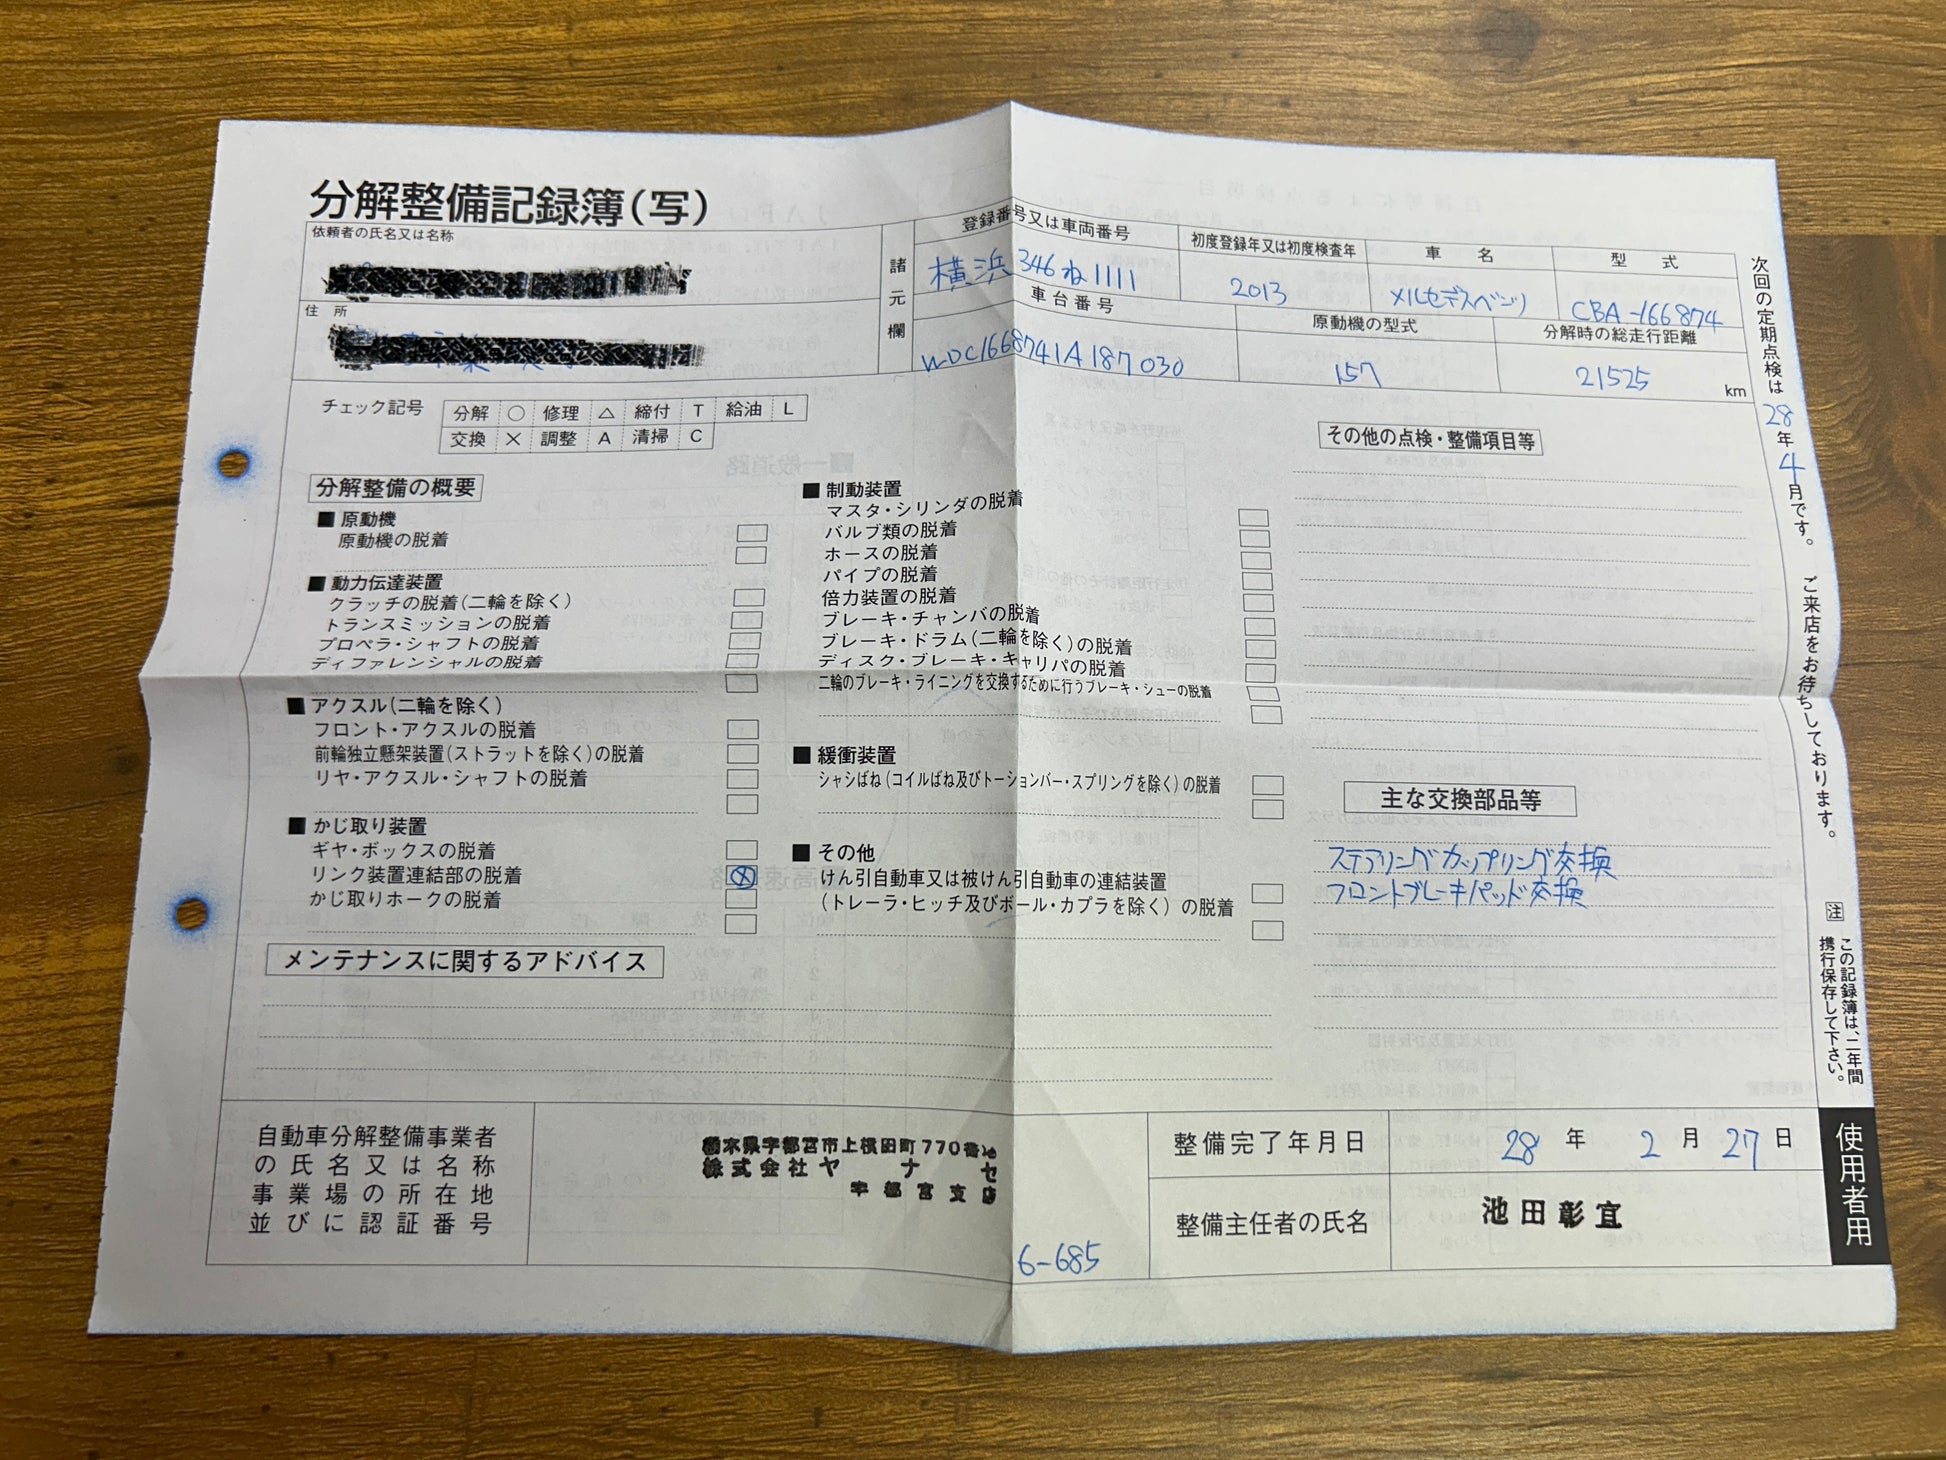 分解整備記録簿(写)
依頼者の氏名又は名称
住所
諸元欄
登録番号又は車両番号
横浜 346 ね 1111
初度登録年又は初度検査年
2013
車名
メルセデスベンツ
型式
CBA-166874
車台番号
WDC1668741A187030
原動機の型式
157
分解時の総走行距離
21525 km
次回の定期点検は28年4月です。ご来店をお待ちしております。
チェック記号
分解 ○ 修理 △ 締付 T 給油 L
交換 × 調整 A 清掃 C
分解整備の概要
■ 原動機
原動機の脱着
■ 動力伝達装置
クラッチの脱着(二輪を除く)
トランスミッションの脱着
プロペラ・シャフトの脱着
ディファレンシャルの脱着
■ アクスル(二輪を除く)
フロント・アクスルの脱着
前輪独立懸架装置(ストラットを除く)の脱着
リヤ・アクスル・シャフトの脱着
■ かじ取り装置
ギヤ・ボックスの脱着
リンク装置連結部の脱着 ⊗
かじ取りホークの脱着
■ 制動装置
マスタ・シリンダの脱着
バルブ類の脱着
ホースの脱着
パイプの脱着
倍力装置の脱着
ブレーキ・チャンバの脱着
ブレーキ・ドラム(二輪を除く)の脱着
ディスク・ブレーキ・キャリパの脱着
二輪のブレーキ・ライニングを交換するために行うブレーキ・シューの脱着
■ 緩衝装置
シャシばね(コイルばね及びトーションバー・スプリングを除く)の脱着
■ その他
けん引自動車又は被けん引自動車の連結装置
(トレーラ・ヒッチ及びボール・カプラを除く)の脱着
その他の点検・整備項目等
主な交換部品等
ステアリングカップリング交換
フロントブレーキパッド交換
注 この記録簿は、二年間
携行保存して下さい。
メンテナンスに関するアドバイス
自動車分解整備事業者
の氏名又は名称
事業場の所在地
並びに認証番号
栃木県宇都宮市上横田町770番地
株式会社ヤナセ
宇都宮支店
6-685
整備完了年月日
28年 2月 27日
整備主任者の氏名
池田彰宜
使用者用